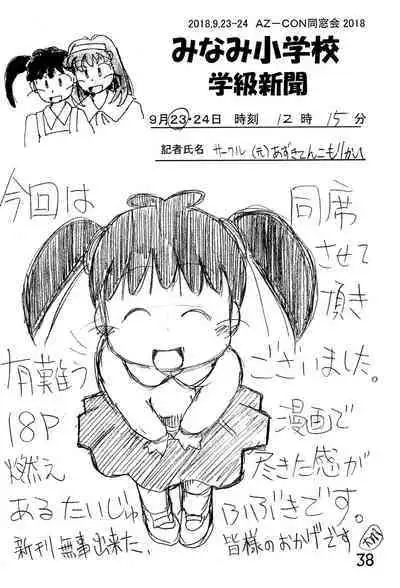 2018,9,23-24 AZ－CON同窓会 2018
みなみ小学校
学級新聞
9月23・24日 時刻 12時 15分
記者氏名 サークル(元)あずきてんこもり
今回は 同席
させて
頂き
有難う ございました。
18P 漫画で
燃え 尽きた感が
あるたいじゅ ふぶきです。
新刊無事出来た、皆様のおかげです
38